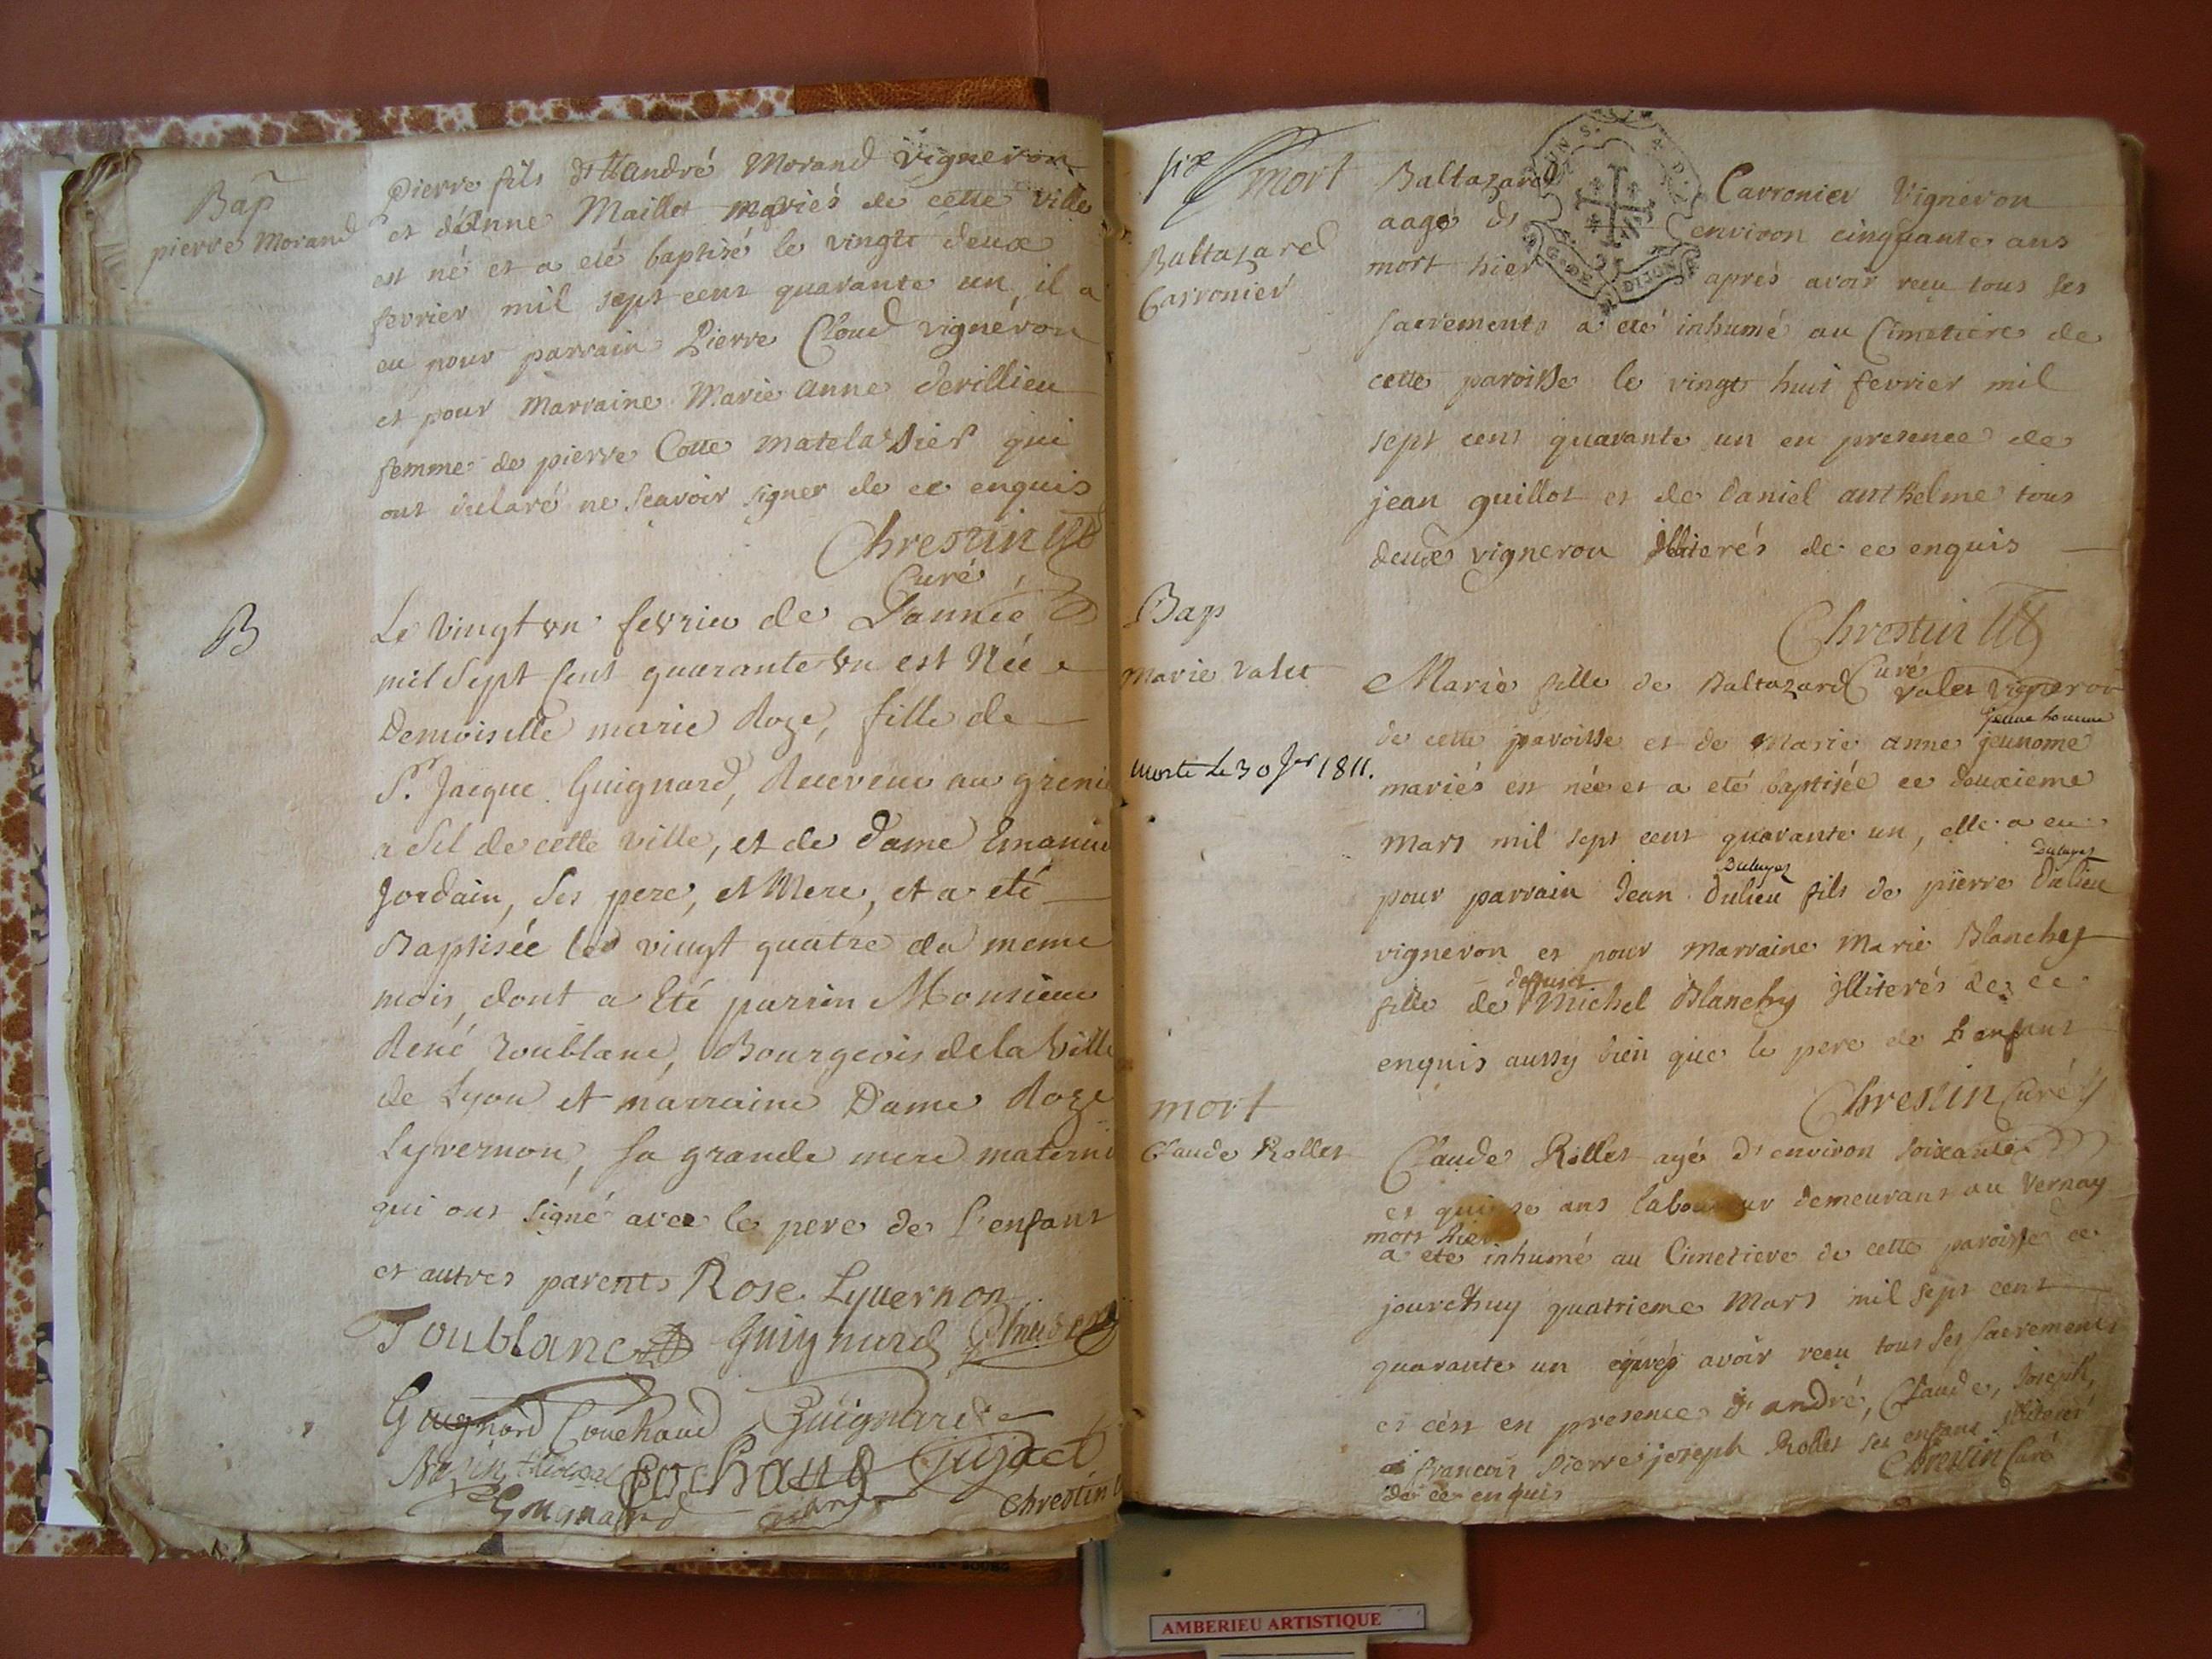 Bap
pierre Morand
Pierre fils d'André Morand vigneron
et d'Anne Maillet mariés de cette ville
est né et a eté baptisé le vingt deux
fevrier mil sept cent quarante un, il a
eu pour parrain Pierre Cloud vigneron
et pour marraine Marie anne derillieu
femme de pierre Cotte matelassier qui
ont declaré ne scavoir signer de ce enquis
Chrestin
Curé
B
Le vingt un fevrier de L'année
mil sept cent quarante un est Née
Demoiselle marie Roze, fille de
Sr. Jacque Guignard, Receveur au greni
a sel de cette ville, et de dame
Jordain, ses pere, et Mere, et a eté
Baptisée le vingt quatre du meme
mois, dont a Eté parrin Monsieur
René Toublanc, Bourgeois de la ville
de Lyon et marraine Dame Roze
Lyvernon, sa grande mere materne
qui ont signé avec le pere de l'enfant
et autres parents Rose Lyvernon
Toublanc Guignard
Guignard Couchaud Guignard
Cochaud
Guignard Chrestin
mort
Baltazard
Carronier
Baltazard Carronier Vigneron
aagé de environ cinquante ans
mort hier aprés avoir recu tous ses
sacrements a eté inhumé au Cimetiere de
cette paroisse le vingt huit fevrier mil
sept cent quarante un en presence de
jean guillot et de daniel anthelme tous
deux vigneron illiterés de ce enquis
Chrestin
Curé
Bap
marie valet
morte le 30 Jer 1811.
Marie fille de Baltazard valet vigneron
jeune homme
de cette paroisse et de Marie anne jeunome
mariés est née et a eté baptisée ce deuxieme
mars mil sept cent quarante un, elle a eu
pour parrain Jean dulieu fils de pierre dulieu
vigneron et pour marraine Marie Blanchy
deffunct
fille de Michel Blanchy illiterés de ce
enquis aussy bien que le pere de L'enfant
Chrestin Curé
mort
Claude Rollet
Claude Rollet agé d'environ soixante
et quinse ans laboureur demeurant au Vernay
mort hier
a eté inhumé au Cimetiere de cette paroisse ce
jourdhuy quatrieme Mars mil sept cent
quarante un aprés avoir recu tous ses sacrements
et cést en presence d'andré, Claude, Joseph,
francois Pierre joseph Rollet ses enfans illiterés
de ce enquis Chrestin Curé
DIJON
AMBERIEU ARTISTIQUE